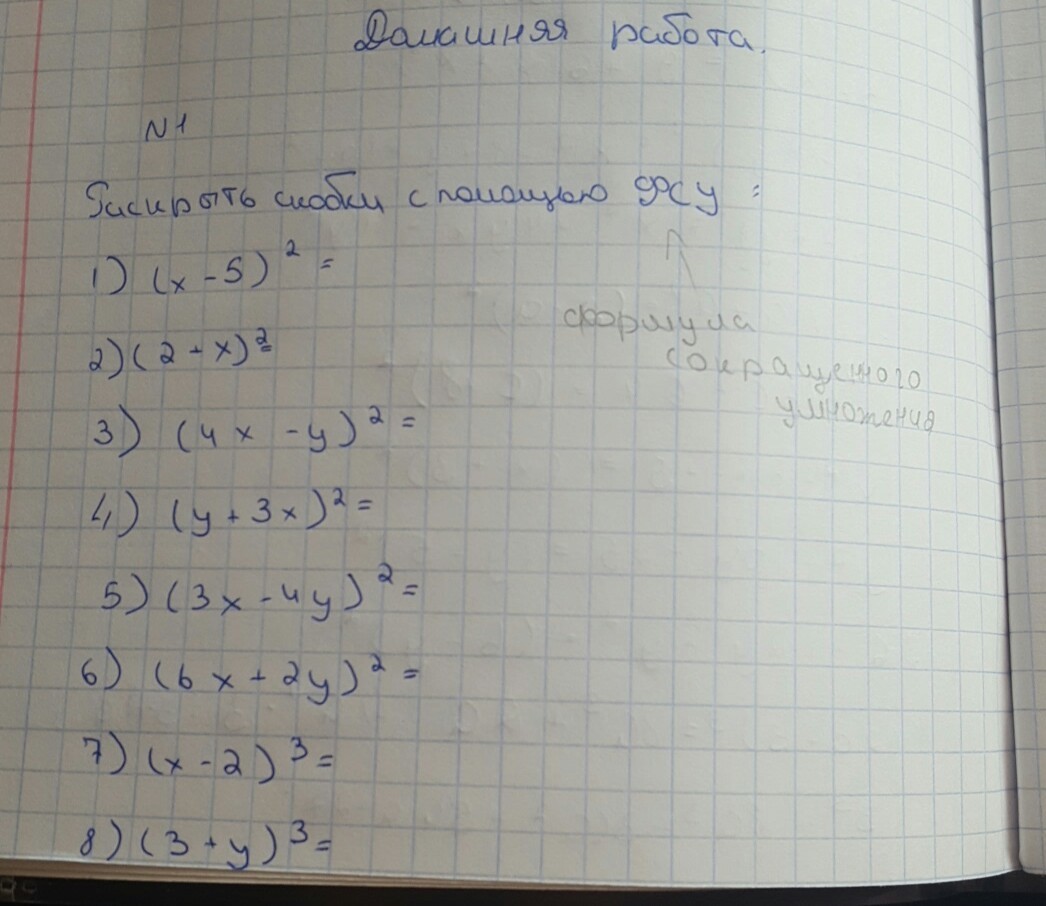 Домашняя работа.
N1
Раскрыть скобки с помощью ФСУ:
формула
сокращенного
умножения
1) (x - 5)² =
2) (2 + x)² =
3) (4x - y)² =
4) (y + 3x)² =
5) (3x - 4y)² =
6) (6x + 2y)² =
7) (x - 2)³ =
8) (3 + y)³ =